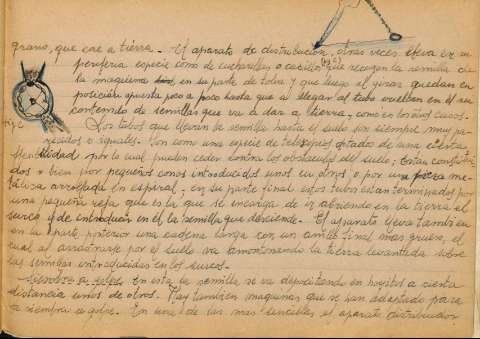 grano, que cae a tierra. El aparato de distribución, otras veces lleva en su
periferia especie de cucharillas o cacillos (fig 3) que recogen la semilla de
la maquina en su parte de tolva y que luego al girar quedan en
posición opuesta poco a poco hasta que al llegar al tubo vuelven en él su
contenido de semillas que va a dar a tierra, como en los otros casos.
fig 2
Los tubos que llevan la semilla hasta el suelo son siempre muy pa-
recidos o iguales. Son como una especie de telescopios dotados de una cierta
flexibilidad por lo cual pueden ceder contra los obstaculos del suelo; estan construi-
dos o bien por pequeños conos introducidos unos en otros o por una pieza me-
tálica arrollada en espiral; en su parte final estos tubos estan terminados por
una pequeña reja que es la que se encarga de ir abriendo en la tierra el
surco y de introducir en el la semilla que desciende. El aparato lleva tambien
en la parte posterior una cadena larga con un anillo final mas grueso, el
cual al arrastrarse por el suelo va amontonando la tierra levantada sobre
las semillas introducidas en los surcos.
Siembra a golpe. En esta la semilla se va depositando en hoyitos a cierta
distancia unos de otros. Hay tambien maquinas que se han adaptado para
la siembra a golpe. En una de las mas sencillas el aparato distribuidor